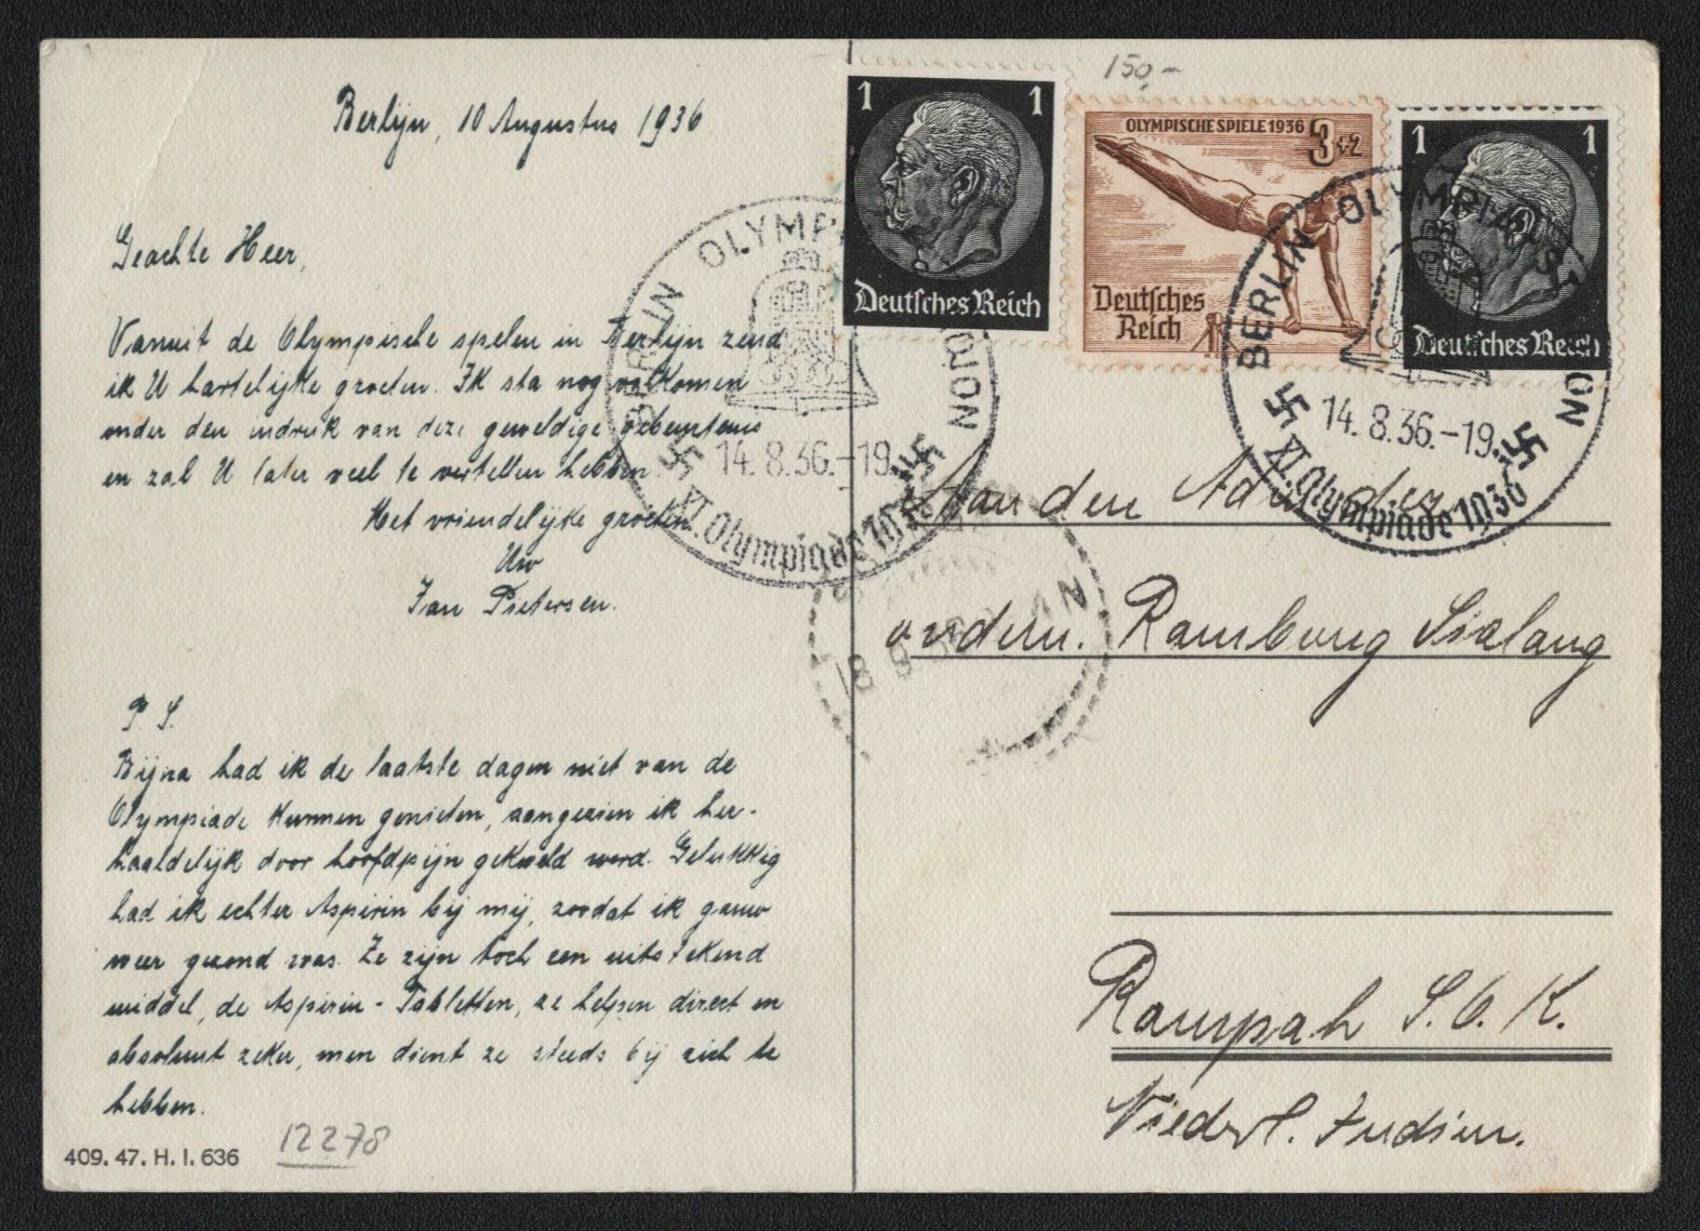 Berlijn, 10 Augustus 1936
Geachte Heer,
Vanuit de Olympische spelen in Berlijn zend
ik U hartelijke groeten. Ik sta nog volkomen
onder den indruk van deze geweldige gebeurtenis
en zal U later veel te vertellen hebben.
Met vriendelijke groeten
Uw
Jan Pietersen.
P. S.
Bijna had ik de laatste dagen niet van de
Olympiade kunnen genieten, aangezien ik her-
haaldelijk door hoofdpijn gekweld werd. Gelukkig
had ik echter Aspirin bij mij, zoodat ik gauw
weer gezond was. Ze zijn toch een uitstekend
middel, de Aspirin-Tabletten, ze helpen direct en
absoluut zeker, men dient ze steeds bij zich te
hebben.
409. 47. H. I. 636
12278
150-
1 1
Deutsches Reich
OLYMPISCHE SPIELE 1936 3+2
Deutsches
Reich
1 1
Deutsches Reich
BERLIN OLYMP
14.8.36.-19
XI. Olympiade 1936
BERLIN OLYMPIA-STADION
14.8.36.-19
XI. Olympiade 1936
18 9
Aan den
ondern. Ramboung Sialang
Rampah S.O.K.
Niederl. Indien.